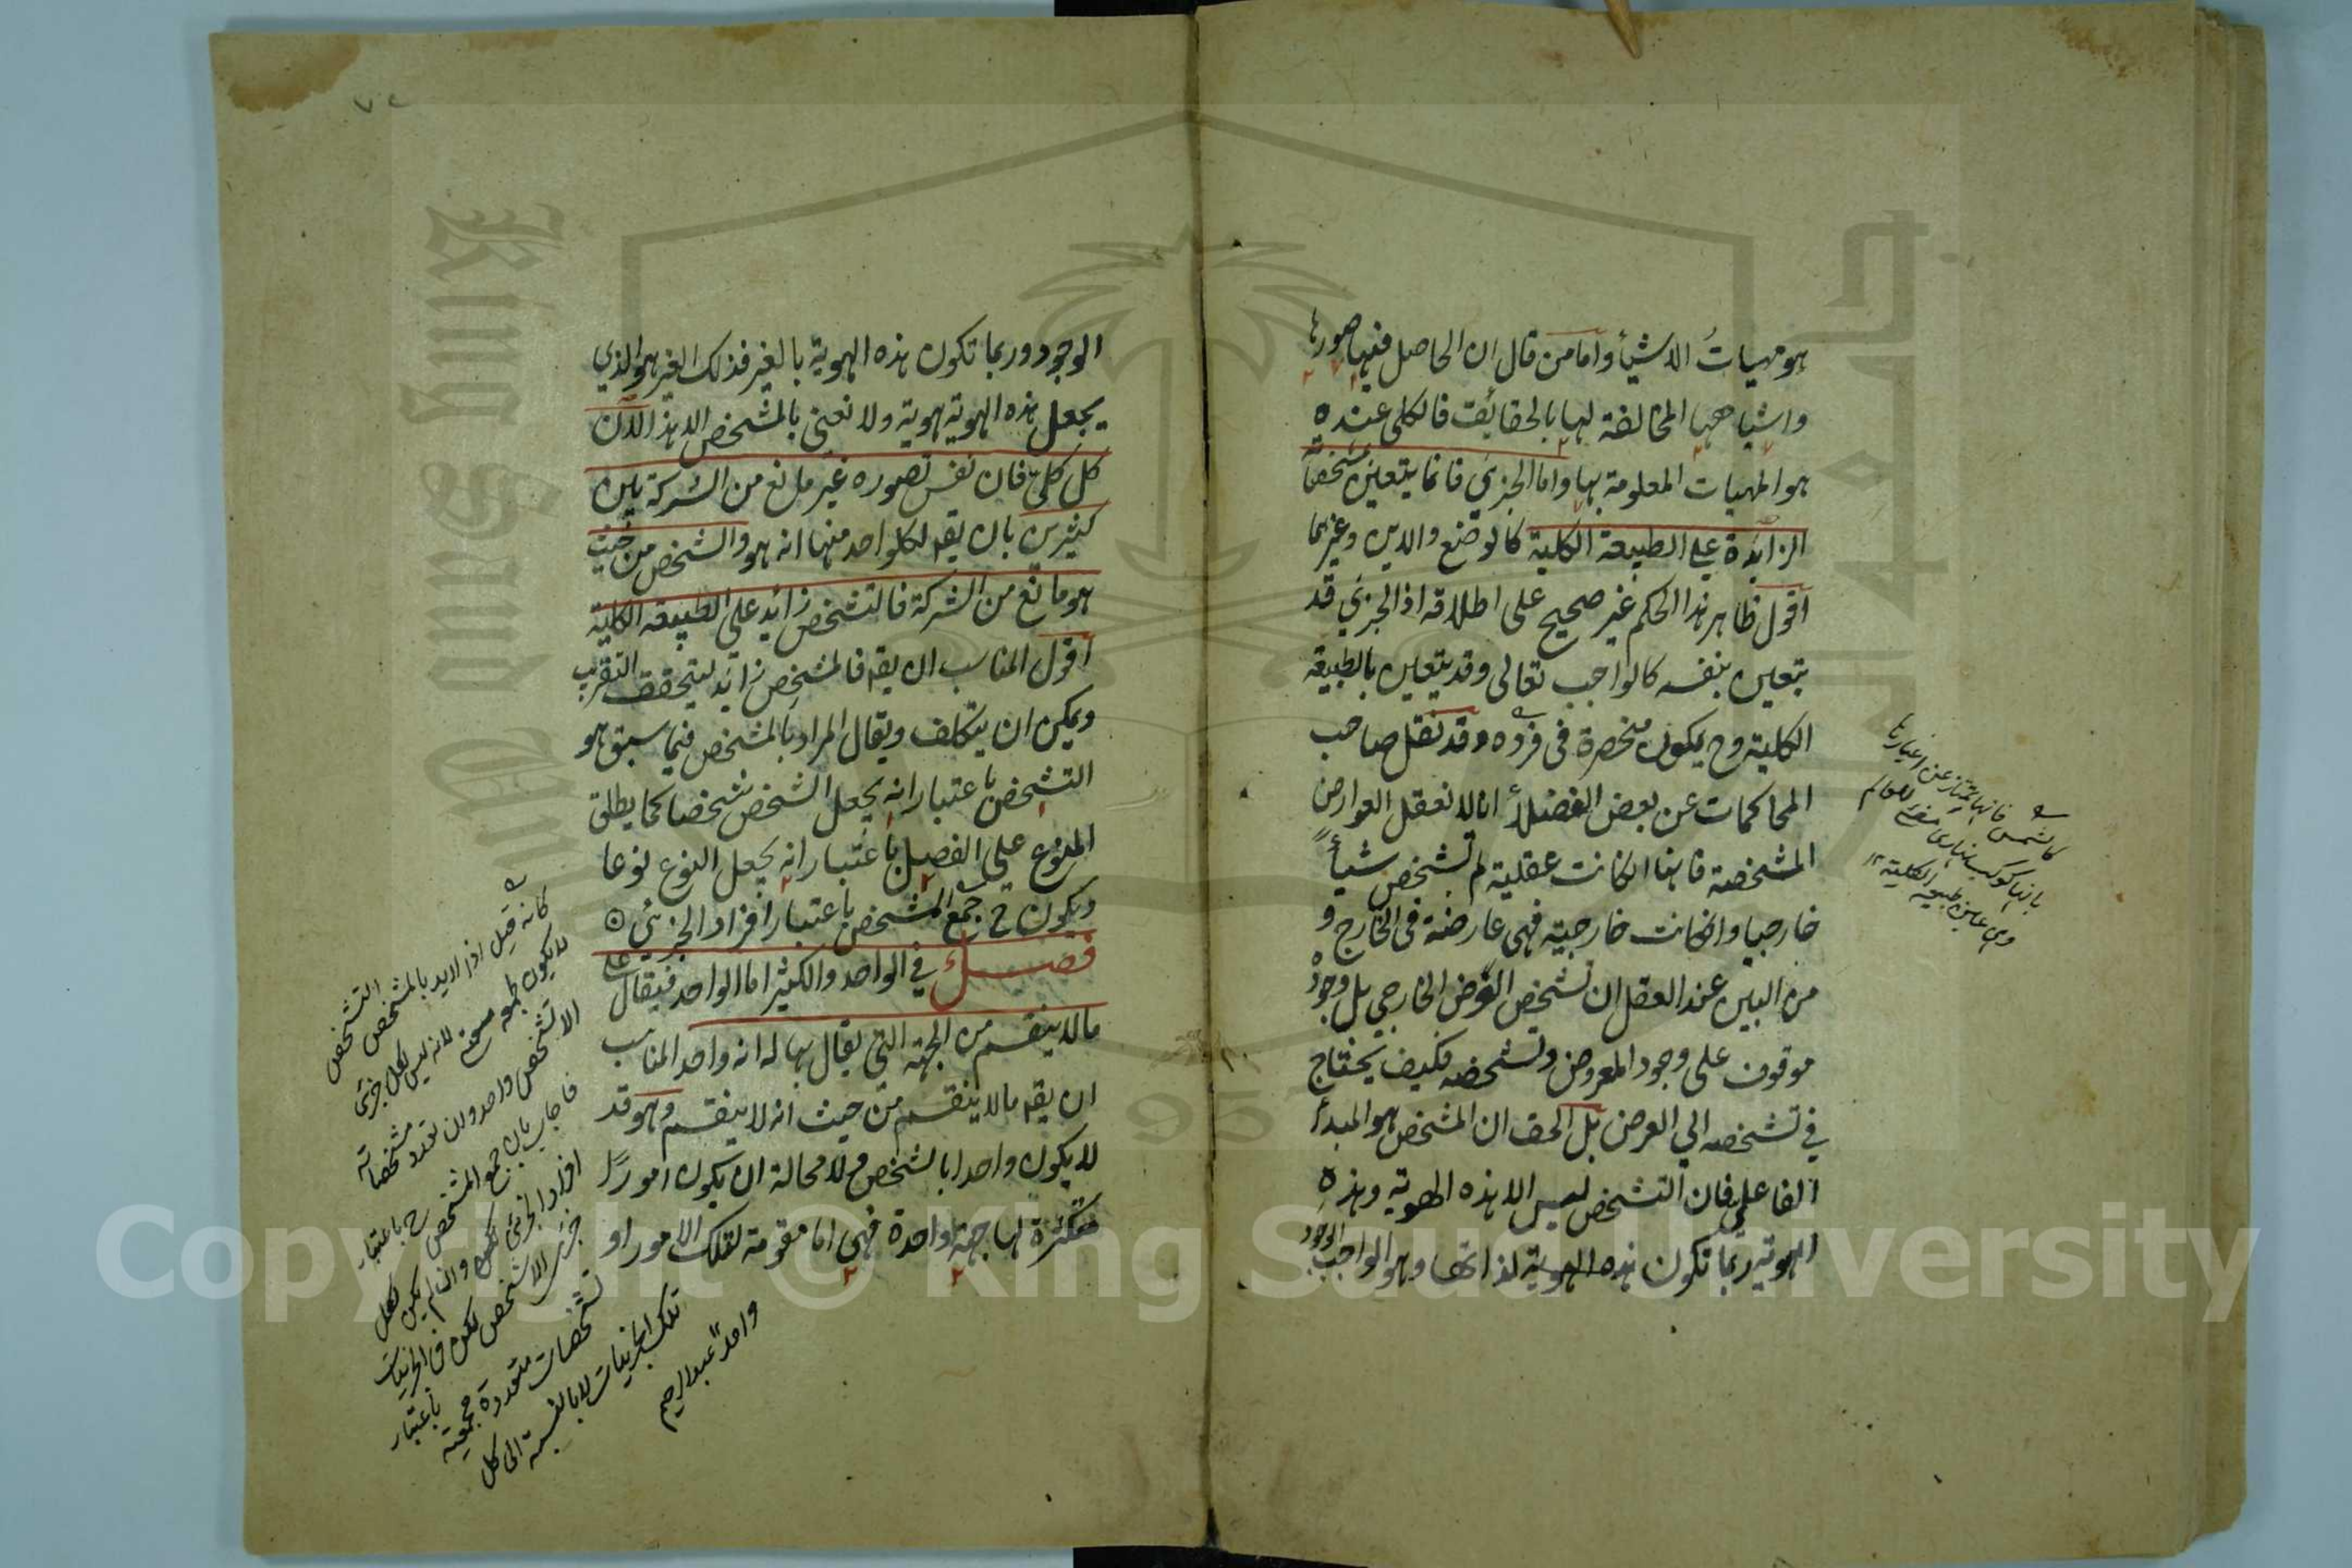 هو مهيات الاشيأ واما من قال ان الحاصل فيها صورها
واشباحها المخالفة لها بالحقائق فالكلى عنده
هو المهيات المعلومة بها واما الجزئي فانما يتعين مشخصاته
الزايدة على الطبيعة الكلية كالوضع والاين وغيرهما
اقول ظاهر هذا الحكم غير صحيح على اطلاقه اذ الجزئي قد
يتعين بنفسه كالواجب تعالى وقد يتعين بالطبيعة
الكلية وح يكون منحصرة فى فرده وقد نقل صاحب
المحاكمات عن بعض الفضلأ انا لا نعقل العوارض
المشخصة فانها انكانت عقلية لم تشخص شيأ
خارجيا وانكانت خارجية فهى عارضة فى الخارج و
من البين عند العقل ان تشخص العرض الخارجى بل وجوده
موقوف على وجود المعروض وتشخصه فكيف يحتاج
في تشخصه الى العرض بل الحق ان المشخص هو المبدأ
الفاعلى فان التشخص ليس الا هذه الهوية وهذه
الهوية ربما تكون هذه الهوية لذاتها وهو الواجب الوجود
كالشمس فانها تمتاز عن اغيارها
بانها كوكب نهارى مضئ للعالم
وهى عين طبيعة الكلية ١٢
٧٥
الوجود وربما تكون هذه الهوية بالغير فذلك الغير هو الذي
يجعل هذه الهوية هوية ولا نعنى بالمشخص الا هذا لان
كل كلى فان نفس تصوره غير مانع من الشركة بين
كثيرين بان يقه لكلواحد منها انه هو والشخص من حيث
هو مانع من الشركة فالتشخص زائد على الطبيعة الكلية
اقول المناسب ان يقه فالمشخص زائد ليتحقق التقريب
ويمكن ان يتكلف ويقال المراد بالمشخص فيما سبق هو
التشخص باعتبار انه يجعل الشخص شخصا كما يطلق
المنوع على الفصل باعتبار انه يجعل النوع نوعا
ويكون ح جمع المشخص باعتبار افراد الجزئى
فصل في الواحد والكثير اما الواحد فيقال على
ما لا ينقسم من الجهة التى يقال بها له انه واحد المناسب
ان يقه ما لا ينقسم من حيث انه لا ينقسم وهو قد
لا يكون واحدا بالشخص فلا محالة ان يكون امورًا
متكثرة لها جهة واحدة فهى اما مقومة لتلك الامور او
كانه قيل اذن لا يريد بالمشخص التشخص
لا يكون لجمعه صحة لانه ليس لكل جزئى
الا تشخص واحد وان تعدد مشخصاته
فاجاب بان جمع المشخص ح باعتبار
افراد الجزئى وان لم يكن لكل
جزئى الا تشخص لكن فى الجزئيات
تشخصات متعددة جمعية باعتبار
تلك الجزئيات لا بالنسبة الى كل
واحد عبد الرحيم